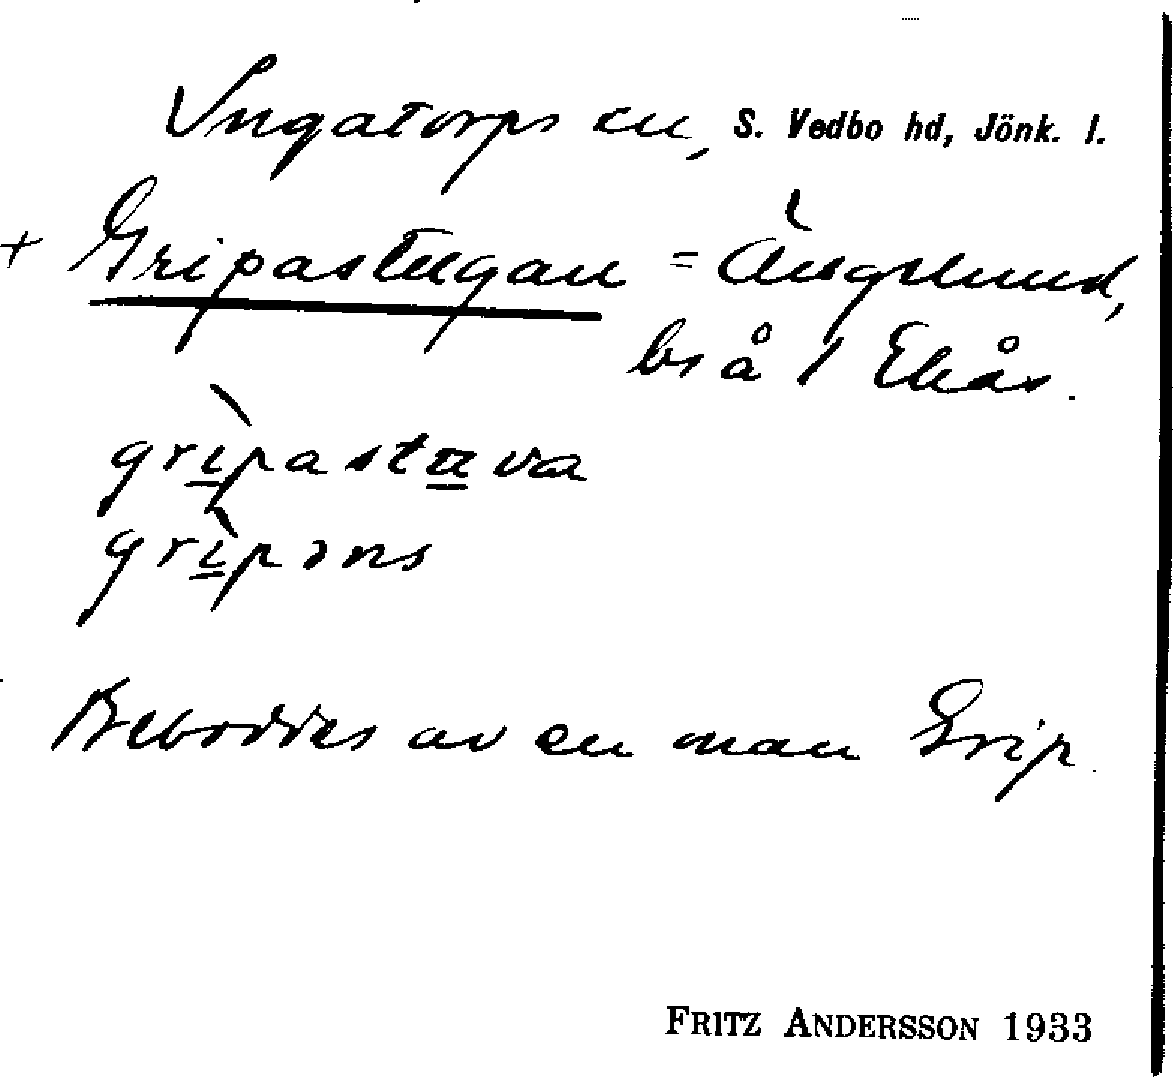 Ingatorps sn, S. Vedbo hd, Jönk. l.
+ Gripastugan = Ängslund,
bs å 1 Ekås.
gripastuva
gripəns
Beboddes av en man Grip.
FRITZ ANDERSSON 1933